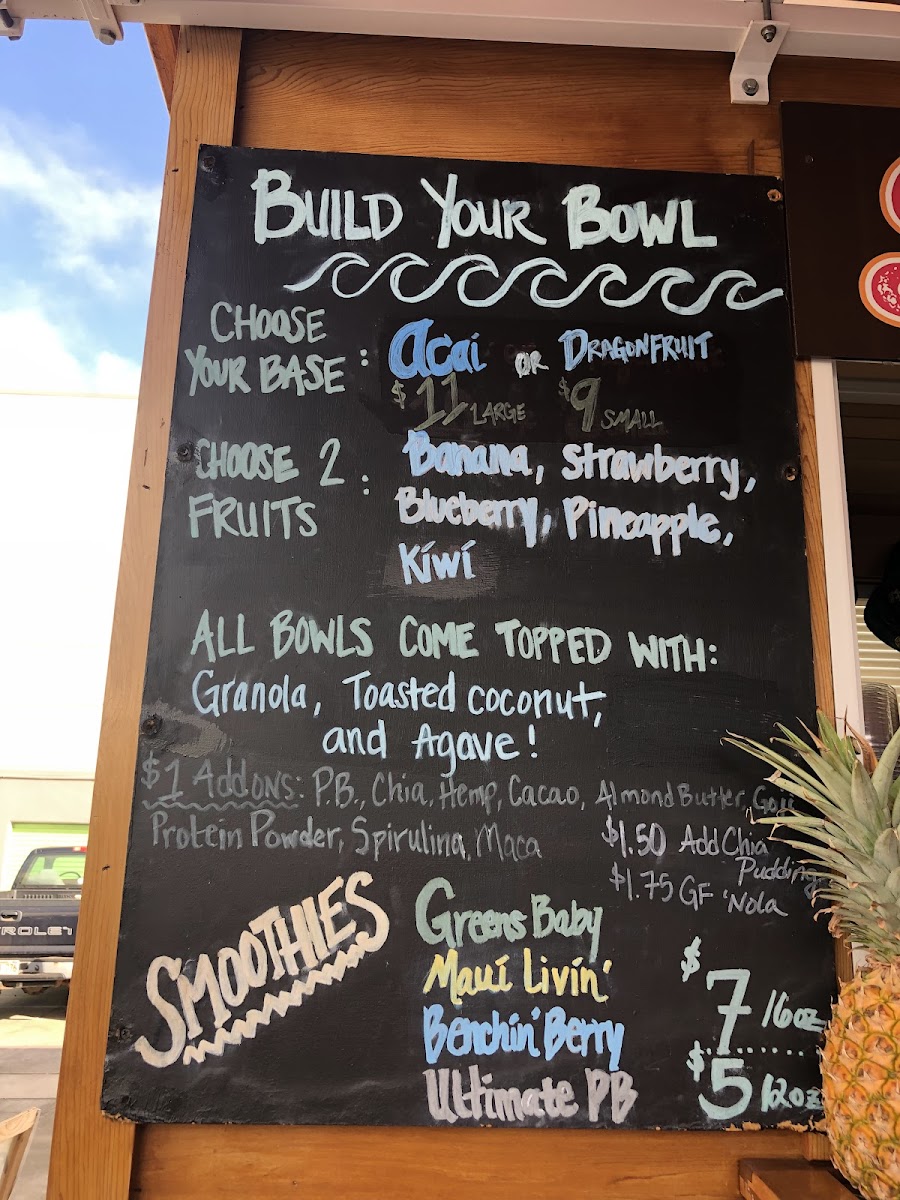 BUILD YOUR BOWL
CHOOSE YOUR BASE: Acai OR DRAGONFRUIT
$11 LARGE $9 SMALL
CHOOSE 2 FRUITS: Banana, Strawberry,
Blueberry, Pineapple,
Kiwi
ALL BOWLS COME TOPPED WITH:
Granola, Toasted coconut,
and Agave!
$1 Add ons: P.B., Chia, Hemp, Cacao, Almond Butter, Goji
Protein Powder, Spirulina, Maca
$1.50 Add Chia
Pudding
$1.75 GF 'Nola
SMOOTHIES
Greens Baby
Maui Livin'
Benchin' Berry
Ultimate PB
$7 16oz
$5 12oz
ROLET